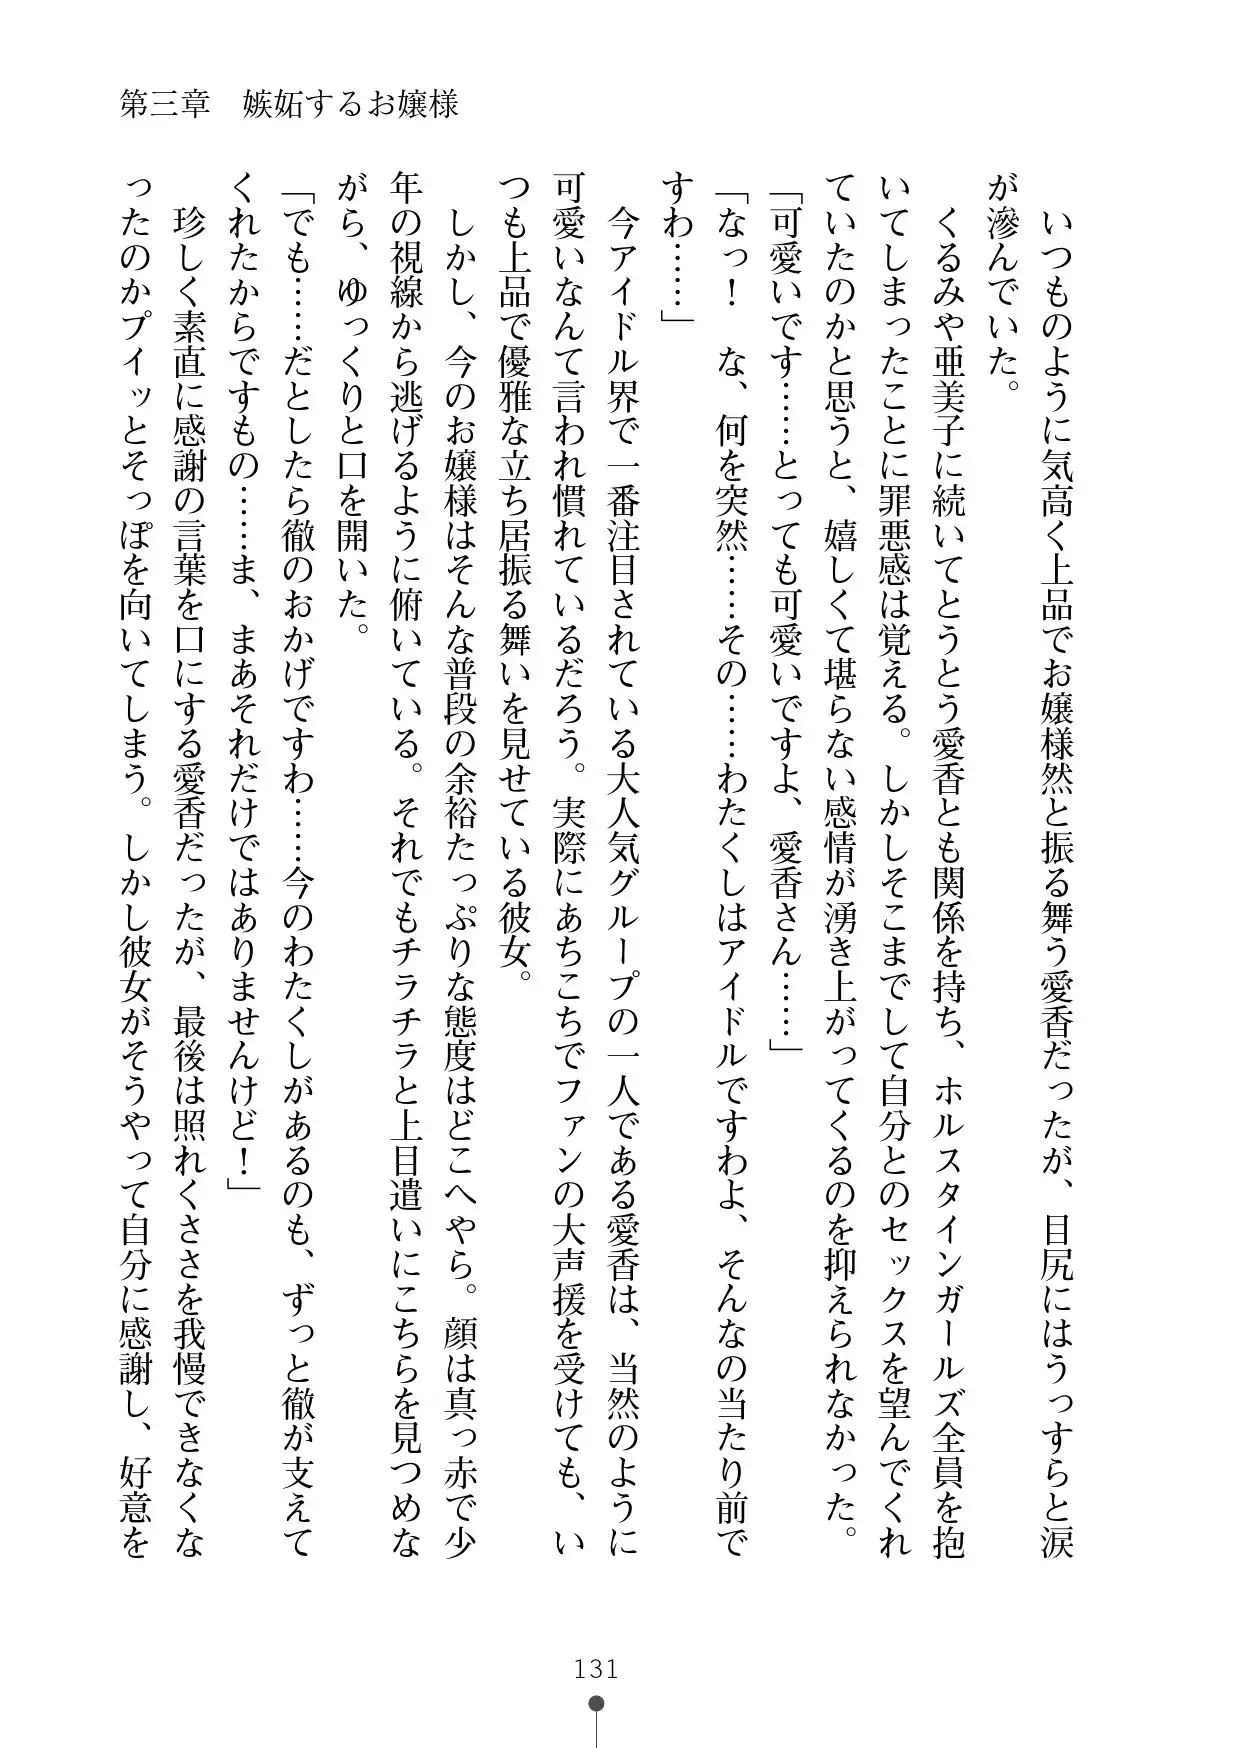 第三章　嫉妬するお嬢様
　いつものように気高く上品でお嬢様然と振る舞う愛香だったが、目尻にはうっすらと涙
が滲んでいた。
　くるみや亜美子に続いてとうとう愛香とも関係を持ち、ホルスタインガールズ全員を抱
いてしまったことに罪悪感は覚える。しかしそこまでして自分とのセックスを望んでくれ
ていたのかと思うと、嬉しくて堪らない感情が湧き上がってくるのを抑えられなかった。
「可愛いです……とっても可愛いですよ、愛香さん……」
「なっ！　な、何を突然……その……わたくしはアイドルですわよ、そんなの当たり前で
すわ……」
　今アイドル界で一番注目されている大人気グループの一人である愛香は、当然のように
可愛いなんて言われ慣れているだろう。実際にあちこちでファンの大声援を受けても、い
つも上品で優雅な立ち居振る舞いを見せている彼女。
　しかし、今のお嬢様はそんな普段の余裕たっぷりな態度はどこへやら。顔は真っ赤で少
年の視線から逃げるように俯いている。それでもチラチラと上目遣いにこちらを見つめな
がら、ゆっくりと口を開いた。
「でも……だとしたら徹のおかげですわ……今のわたくしがあるのも、ずっと徹が支えて
くれたからですもの……ま、まあそれだけではありませんけど！」
　珍しく素直に感謝の言葉を口にする愛香だったが、最後は照れくささを我慢できなくな
ったのかプイッとそっぽを向いてしまう。しかし彼女がそうやって自分に感謝し、好意を
131